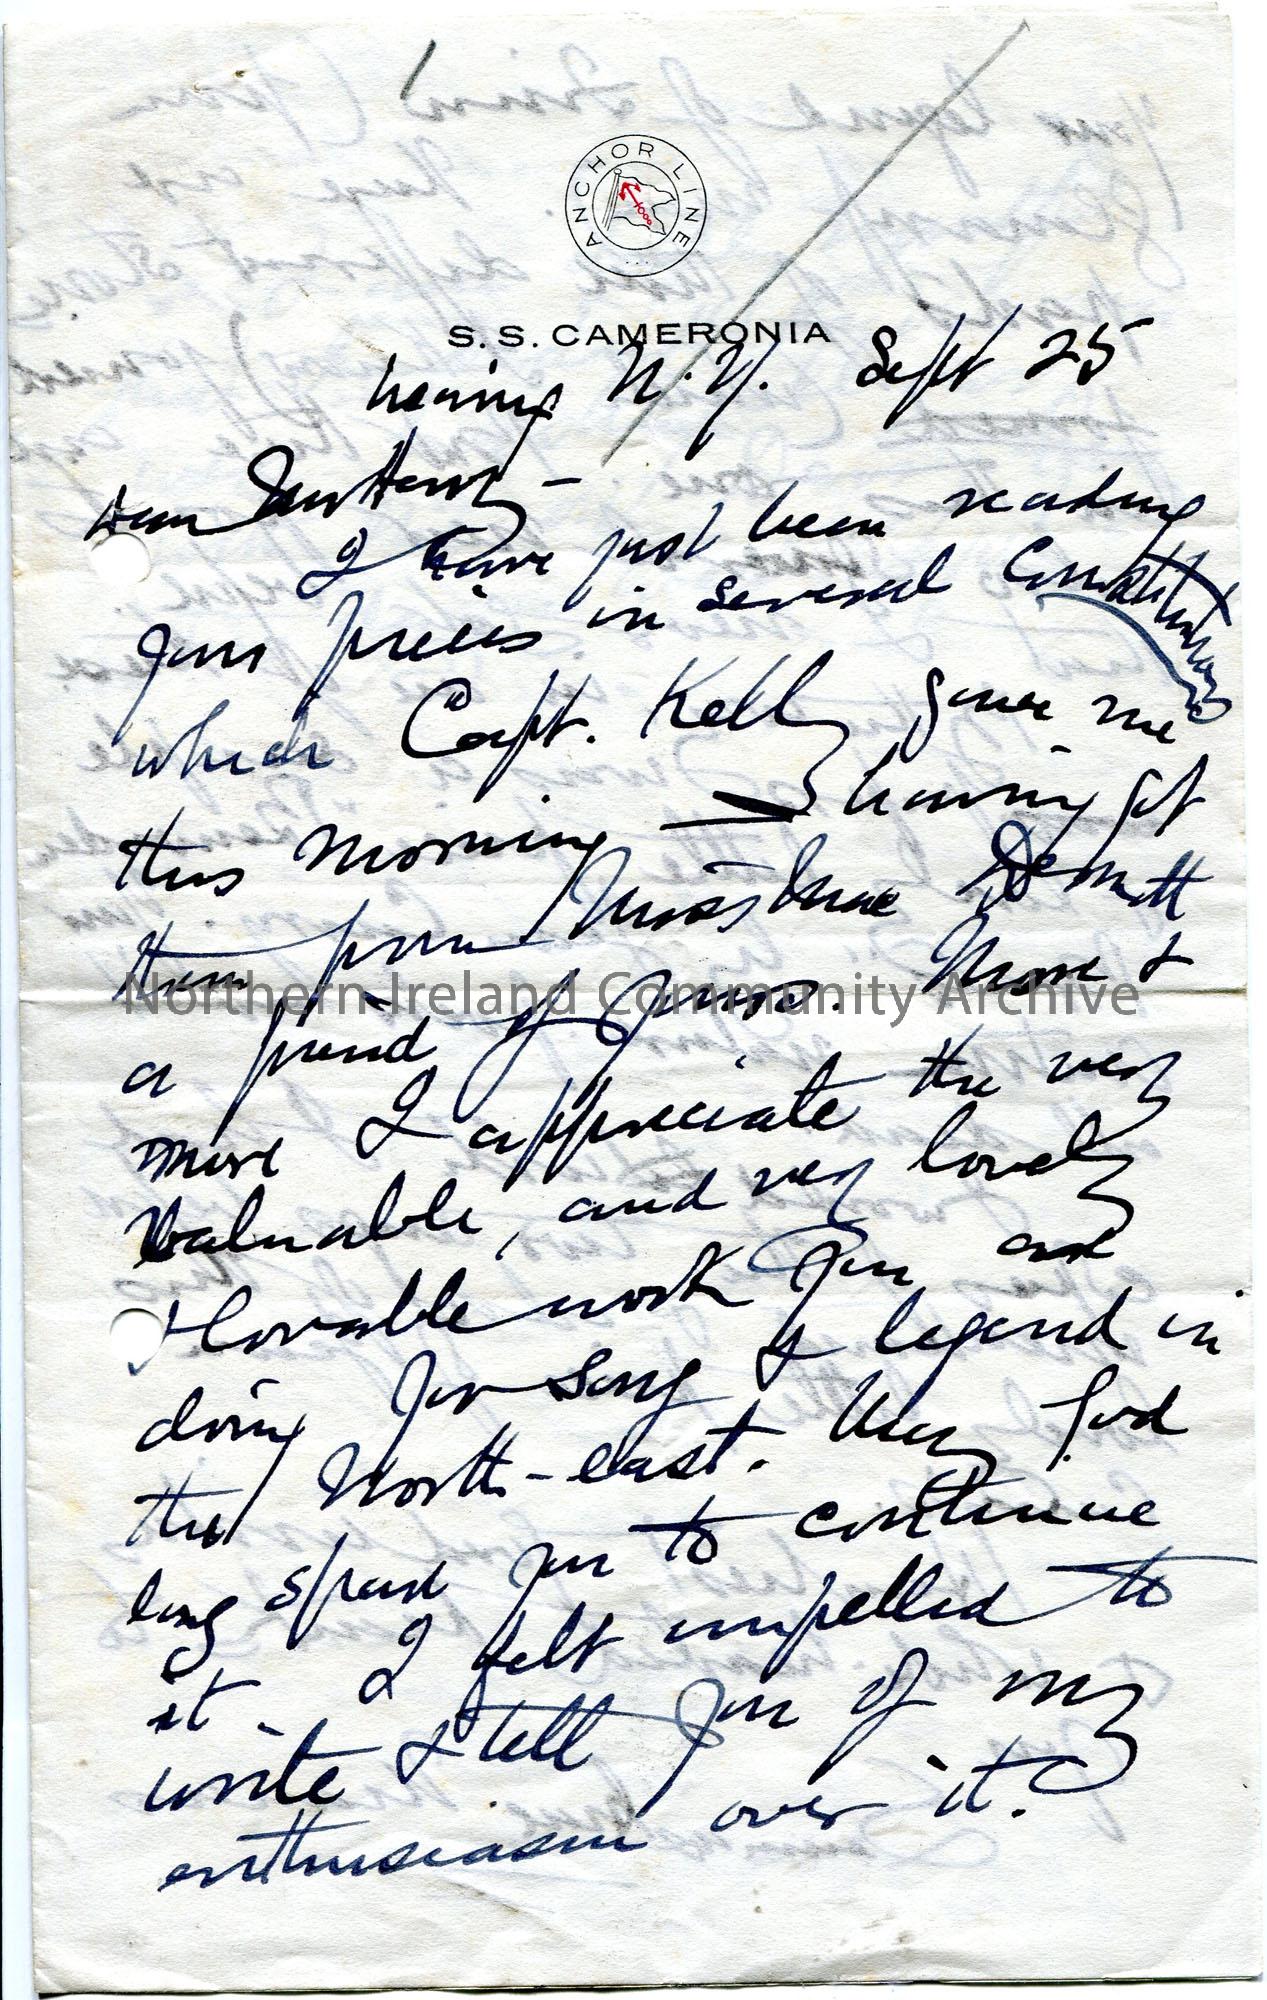 ANCHOR LINE
S. S. CAMERONIA
nearing N.Y. Sept 25
Dear Sam Henry –
I have just been reading
your pieces in several Constitutions
which Capt. Kelly gave me
this morning – having got
them from Miss Mae
a friend of yours. More &
more I appreciate the very
valuable, and very lovely
& lovable work you are
doing for song & legend in
the North-east. May God
long spare you to continue
it. I felt impelled to
write & tell you of my
enthusiasm over it.
Northern Ireland Community Archive